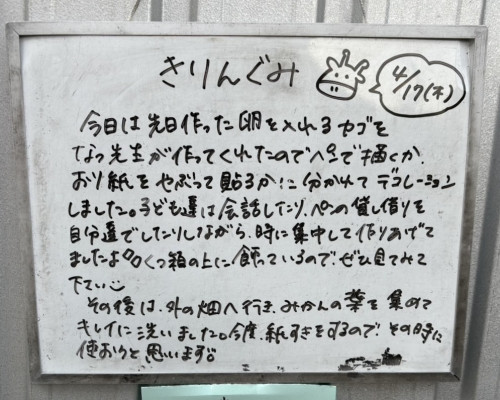 きりんぐみ
4/17(木)
今日は先日作った卵を入れるカゴを
なつ先生が作ってくれたのでペンで描くか、
おり紙をやぶって貼るか!に分かれてデコレーション
しました。子ども達は会話したり、ペンの貸し借りを
自分達でしたりしながら、時に集中して作りあげて
ましたよ。くつ箱の上に飾っているので、ぜひ見てみて
下さい
その後は、外の畑へ行き、みかんの葉を集めて
キレイに洗いました。今度、紙すきをするので、その時に
使おうと思います。